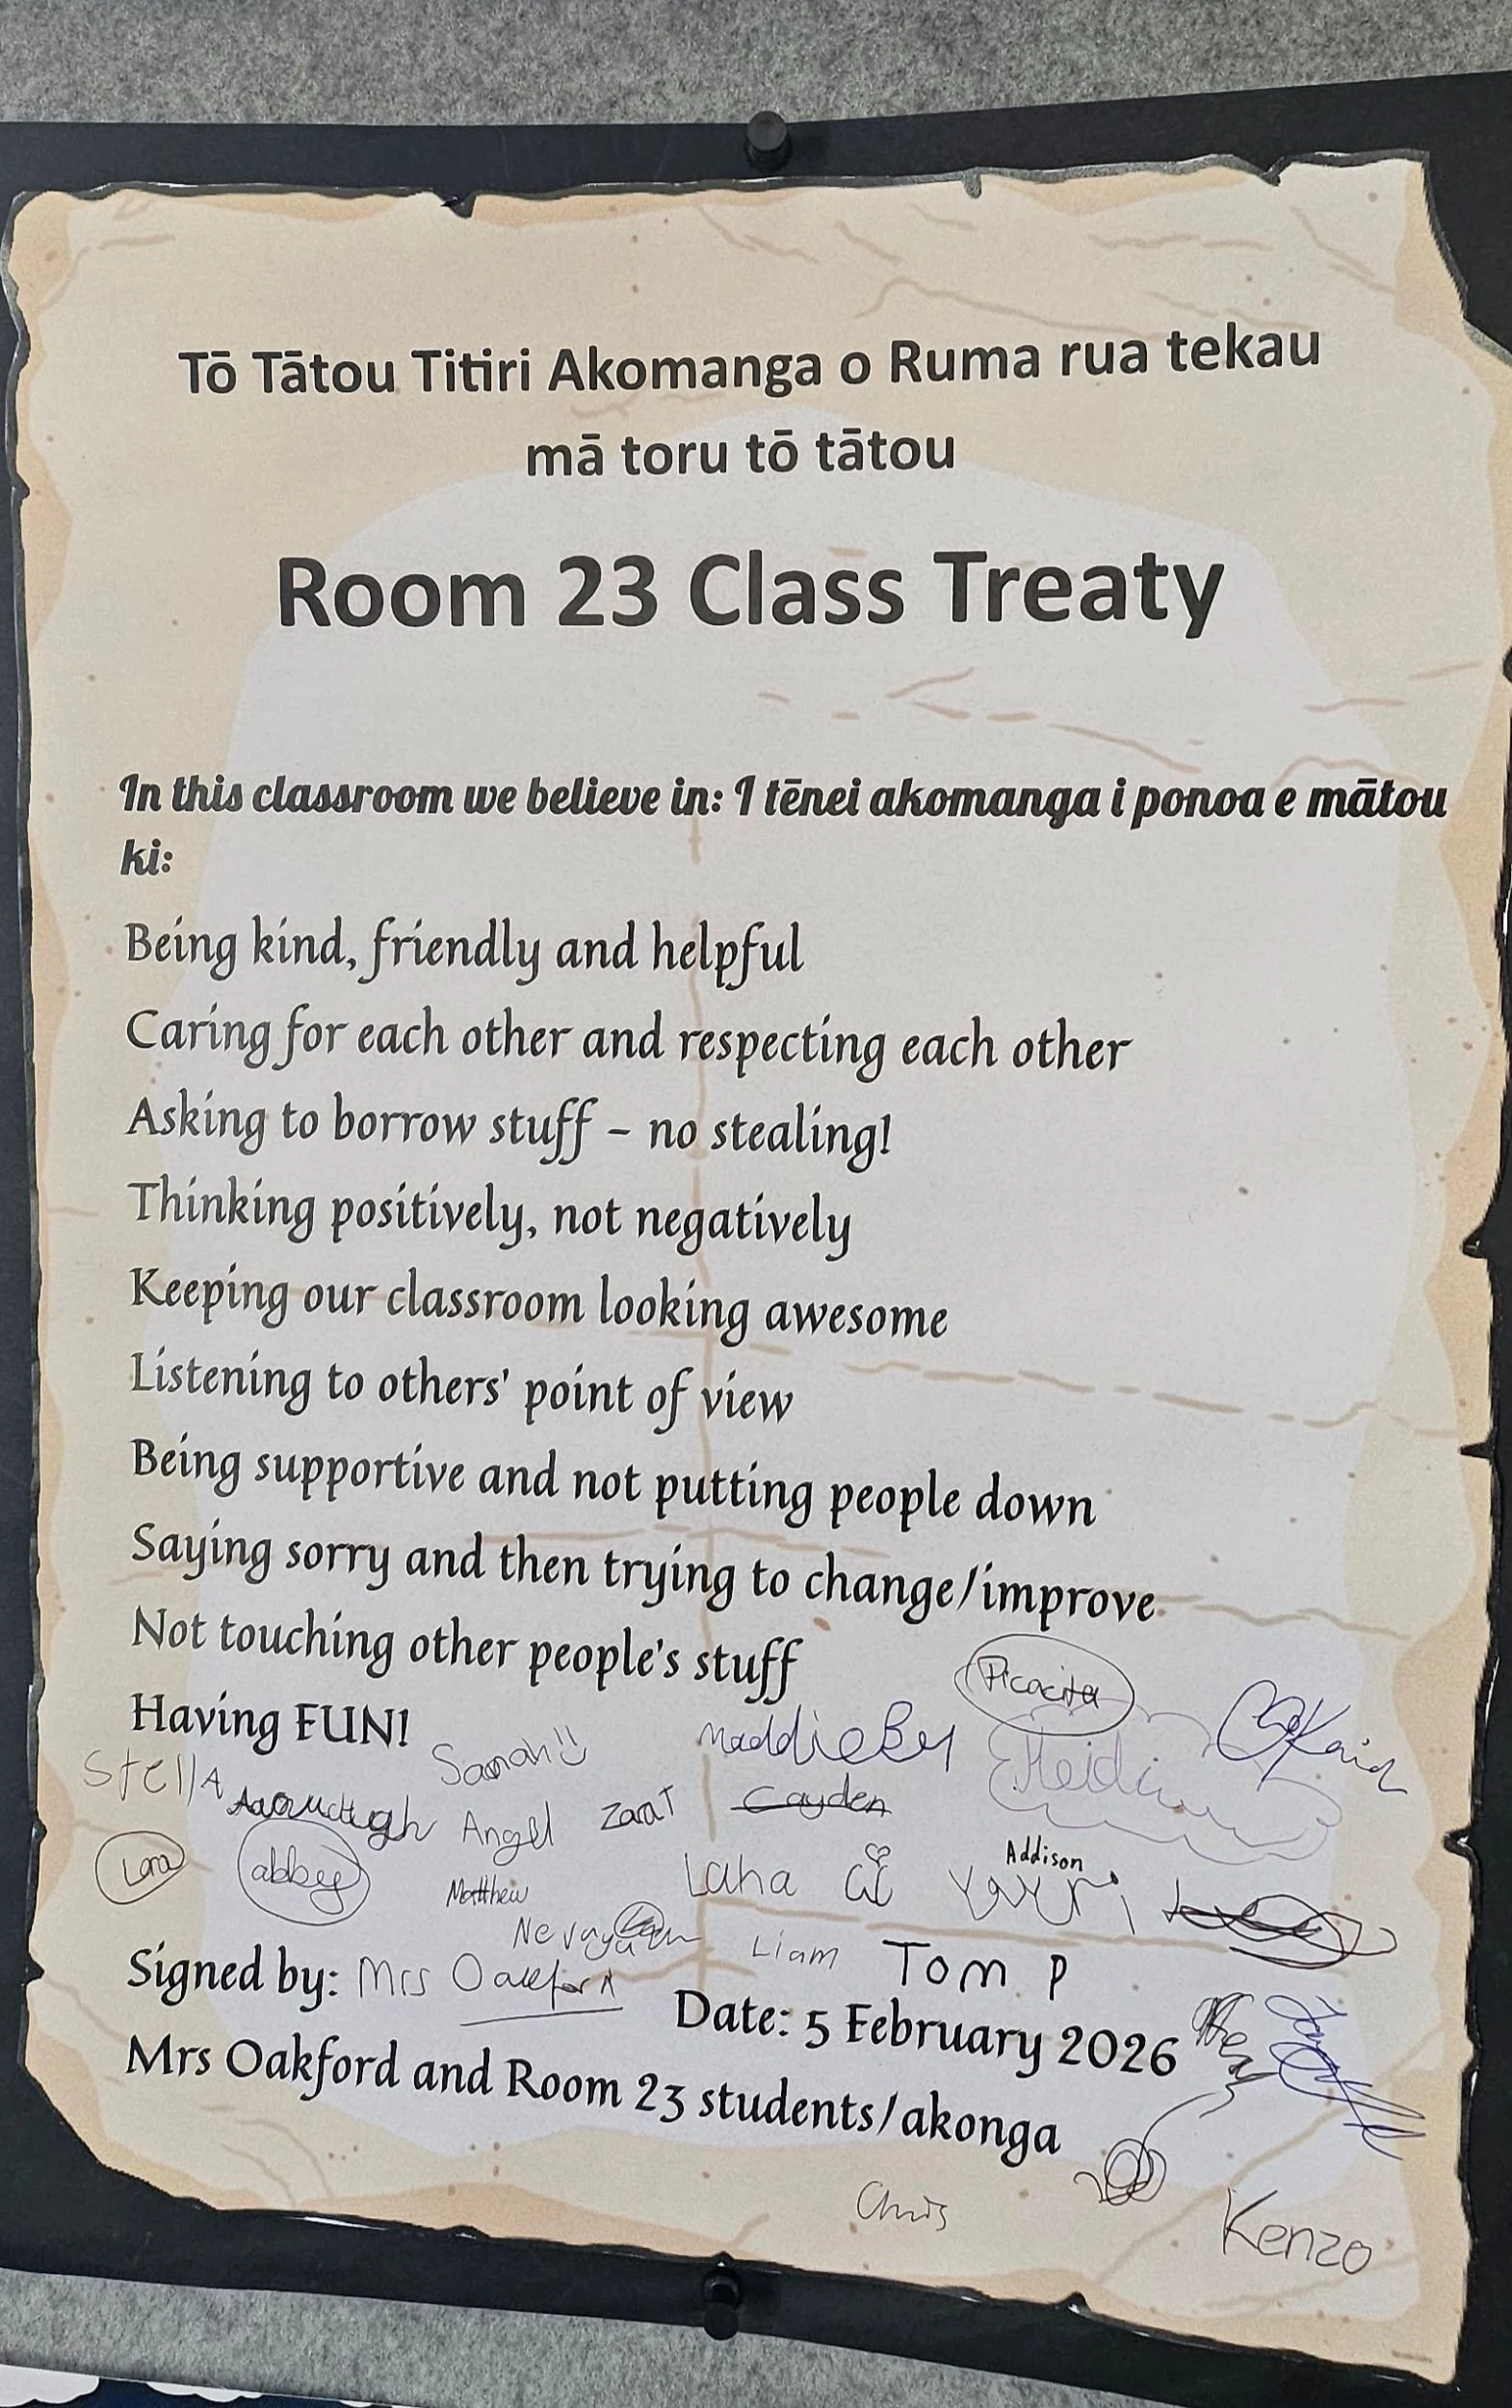 Tō Tātou Titiri Akomanga o Ruma rua tekau
mā toru tō tātou
Room 23 Class Treaty
In this classroom we believe in: I tēnei akomanga i ponoa e mātou
ki:
Being kind, friendly and helpful
Caring for each other and respecting each other
Asking to borrow stuff – no stealing!
Thinking positively, not negatively
Keeping our classroom looking awesome
Listening to others' point of view
Being supportive and not putting people down
Saying sorry and then trying to change/improve
Not touching other people's stuff
Having FUN!
Stella
Heidi
Angel
Cayden
Lara
abbey
Matthew
Addison
Liam
Tom P
Signed by: Mrs Oakford
Date: 5 February 2026
Mrs Oakford and Room 23 students/akonga
Chris
Kenzo